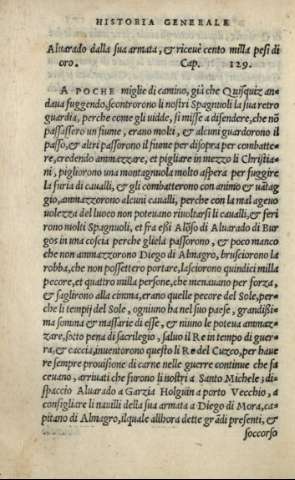 HISTORIA GENERALE
Aluarado dalla sua armata, & riceuè cento milla pesi di
oro. Cap. 129.
A POCHE miglie di camino, già che Quisquiz an-
daua fuggendo, scontrorono li nostri Spagnuoli la sua retro
guardia, perche come gli uidde, si misse a difendere, che nõ
passassero un fiume, erano molti, & alcuni guardorono il
passo, & altri passorono il fiume per disopra per combatte-
re, credendo ammazzare, et pigliare in mezzo li Christia-
ni, pigliorono una montagnuola molto aspera per fuggire
la furia di caualli, & gli combatterono con animo & uãtag
gio, ammazzorono alcuni caualli, perche con la mal ageuo
uolezza del luoco non poteuano riuoltarsi li caualli, & feri
rono molti Spagnuoli, et fra essi Alõso di Aluarado di Bur
gos in una coscia perche gliela passorono, & poco manco
che non ammazzorono Diego di Almagro, brusciorono la
robba, che non possettero portare, lasciorono quindici milla
pecore, et quatro milla persone, che menauano per forza,
& saglirono alla cimma, erano quelle pecore del Sole, per-
che li tempij del Sole, ogniuno ha nel suo paese, grandissi-
ma somma & massarie di esse, & niuno le poteua ammaz-
zare, sotto pena di sacrilegio, saluo il Re in tempo di guer-
ra, & caccia, inuentorono questo li Re del Cuzco, per haue
re sempre prouisione di carne nelle guerre continue che fa
ceuano, arriuati che furono li nostri a Santo Michele; di-
spacciò Aluarado a Garzia Holguin a porto Vecchio, a
consigliare li nauilli della sua armata a Diego di Mora, ca-
pitano di Almagro, il quale allhora dette grãdi presenti, &
soccorso